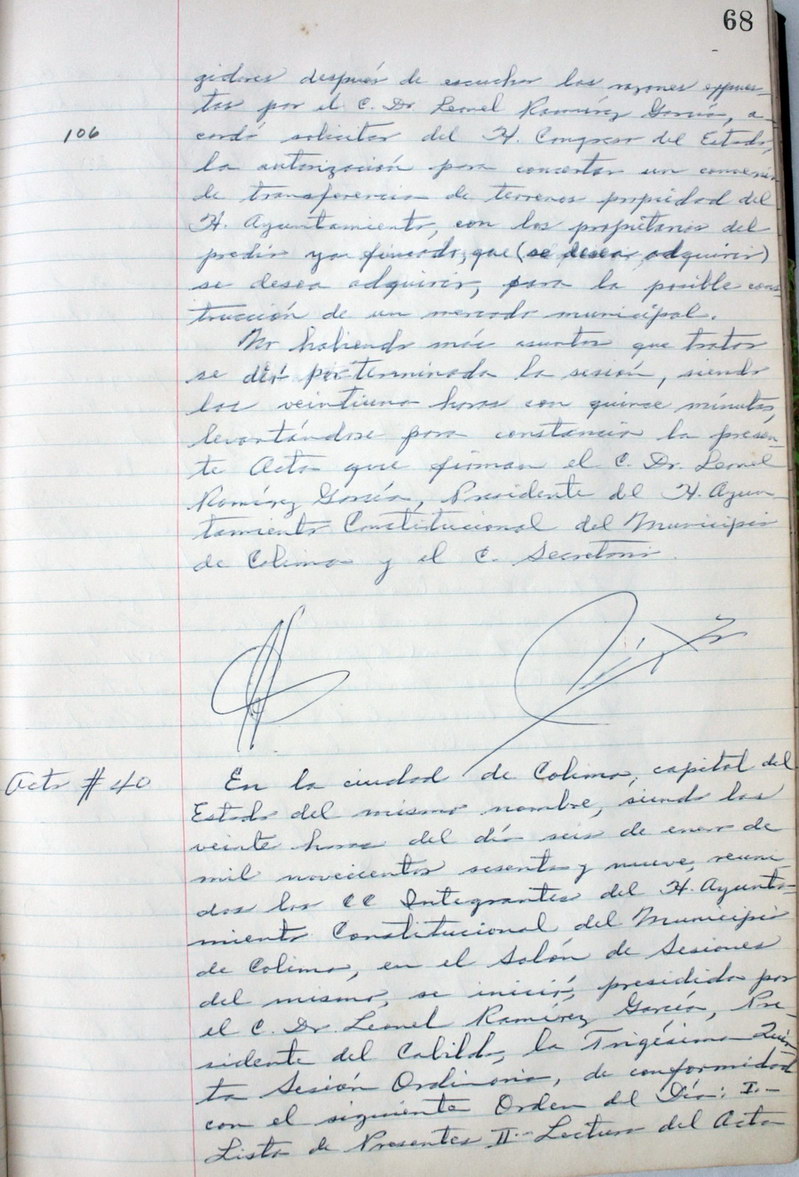 68
gidores después de escuchar las razones expues-
tas por el C. Dr. Leonel Ramírez García, a-
106
cordó solicitar del H. Congreso del Estado,
la autorización para concertar un convenio
de transferencia de terrenos propiedad del
H. Ayuntamiento, con los propietarios del
predio ya fincado, que (se desea adquirir)
se desea adquirir, para la posible cons-
trucción de un mercado municipal.
No habiendo más asuntos que tratar
se dió por terminada la sesión, siendo
las veintiuna horas con quince minutos,
levantándose para constancia la presen-
te Acta que firman el C. Dr. Leonel
Ramírez García, Presidente del H. Ayun-
tamiento Constitucional del Municipio
de Colima y el C. Secretario.
Acta # 40
En la ciudad de Colima, capital del
Estado del mismo nombre, siendo las
veinte horas del día seis de enero de
mil novecientos sesenta y nueve, reuni-
dos los CC Integrantes del H. Ayunta-
miento Constitucional del Municipio
de Colima, en el Salón de Sesiones
del mismo, se inició, presidida por
el C. Dr Leonel Ramírez García, Pre-
sidente del Cabildo, la Trigésima Quin-
ta Sesión Ordinaria, de conformidad
con el siguiente Orden del Día: I.-
Lista de Presentes II.- Lectura del Acta